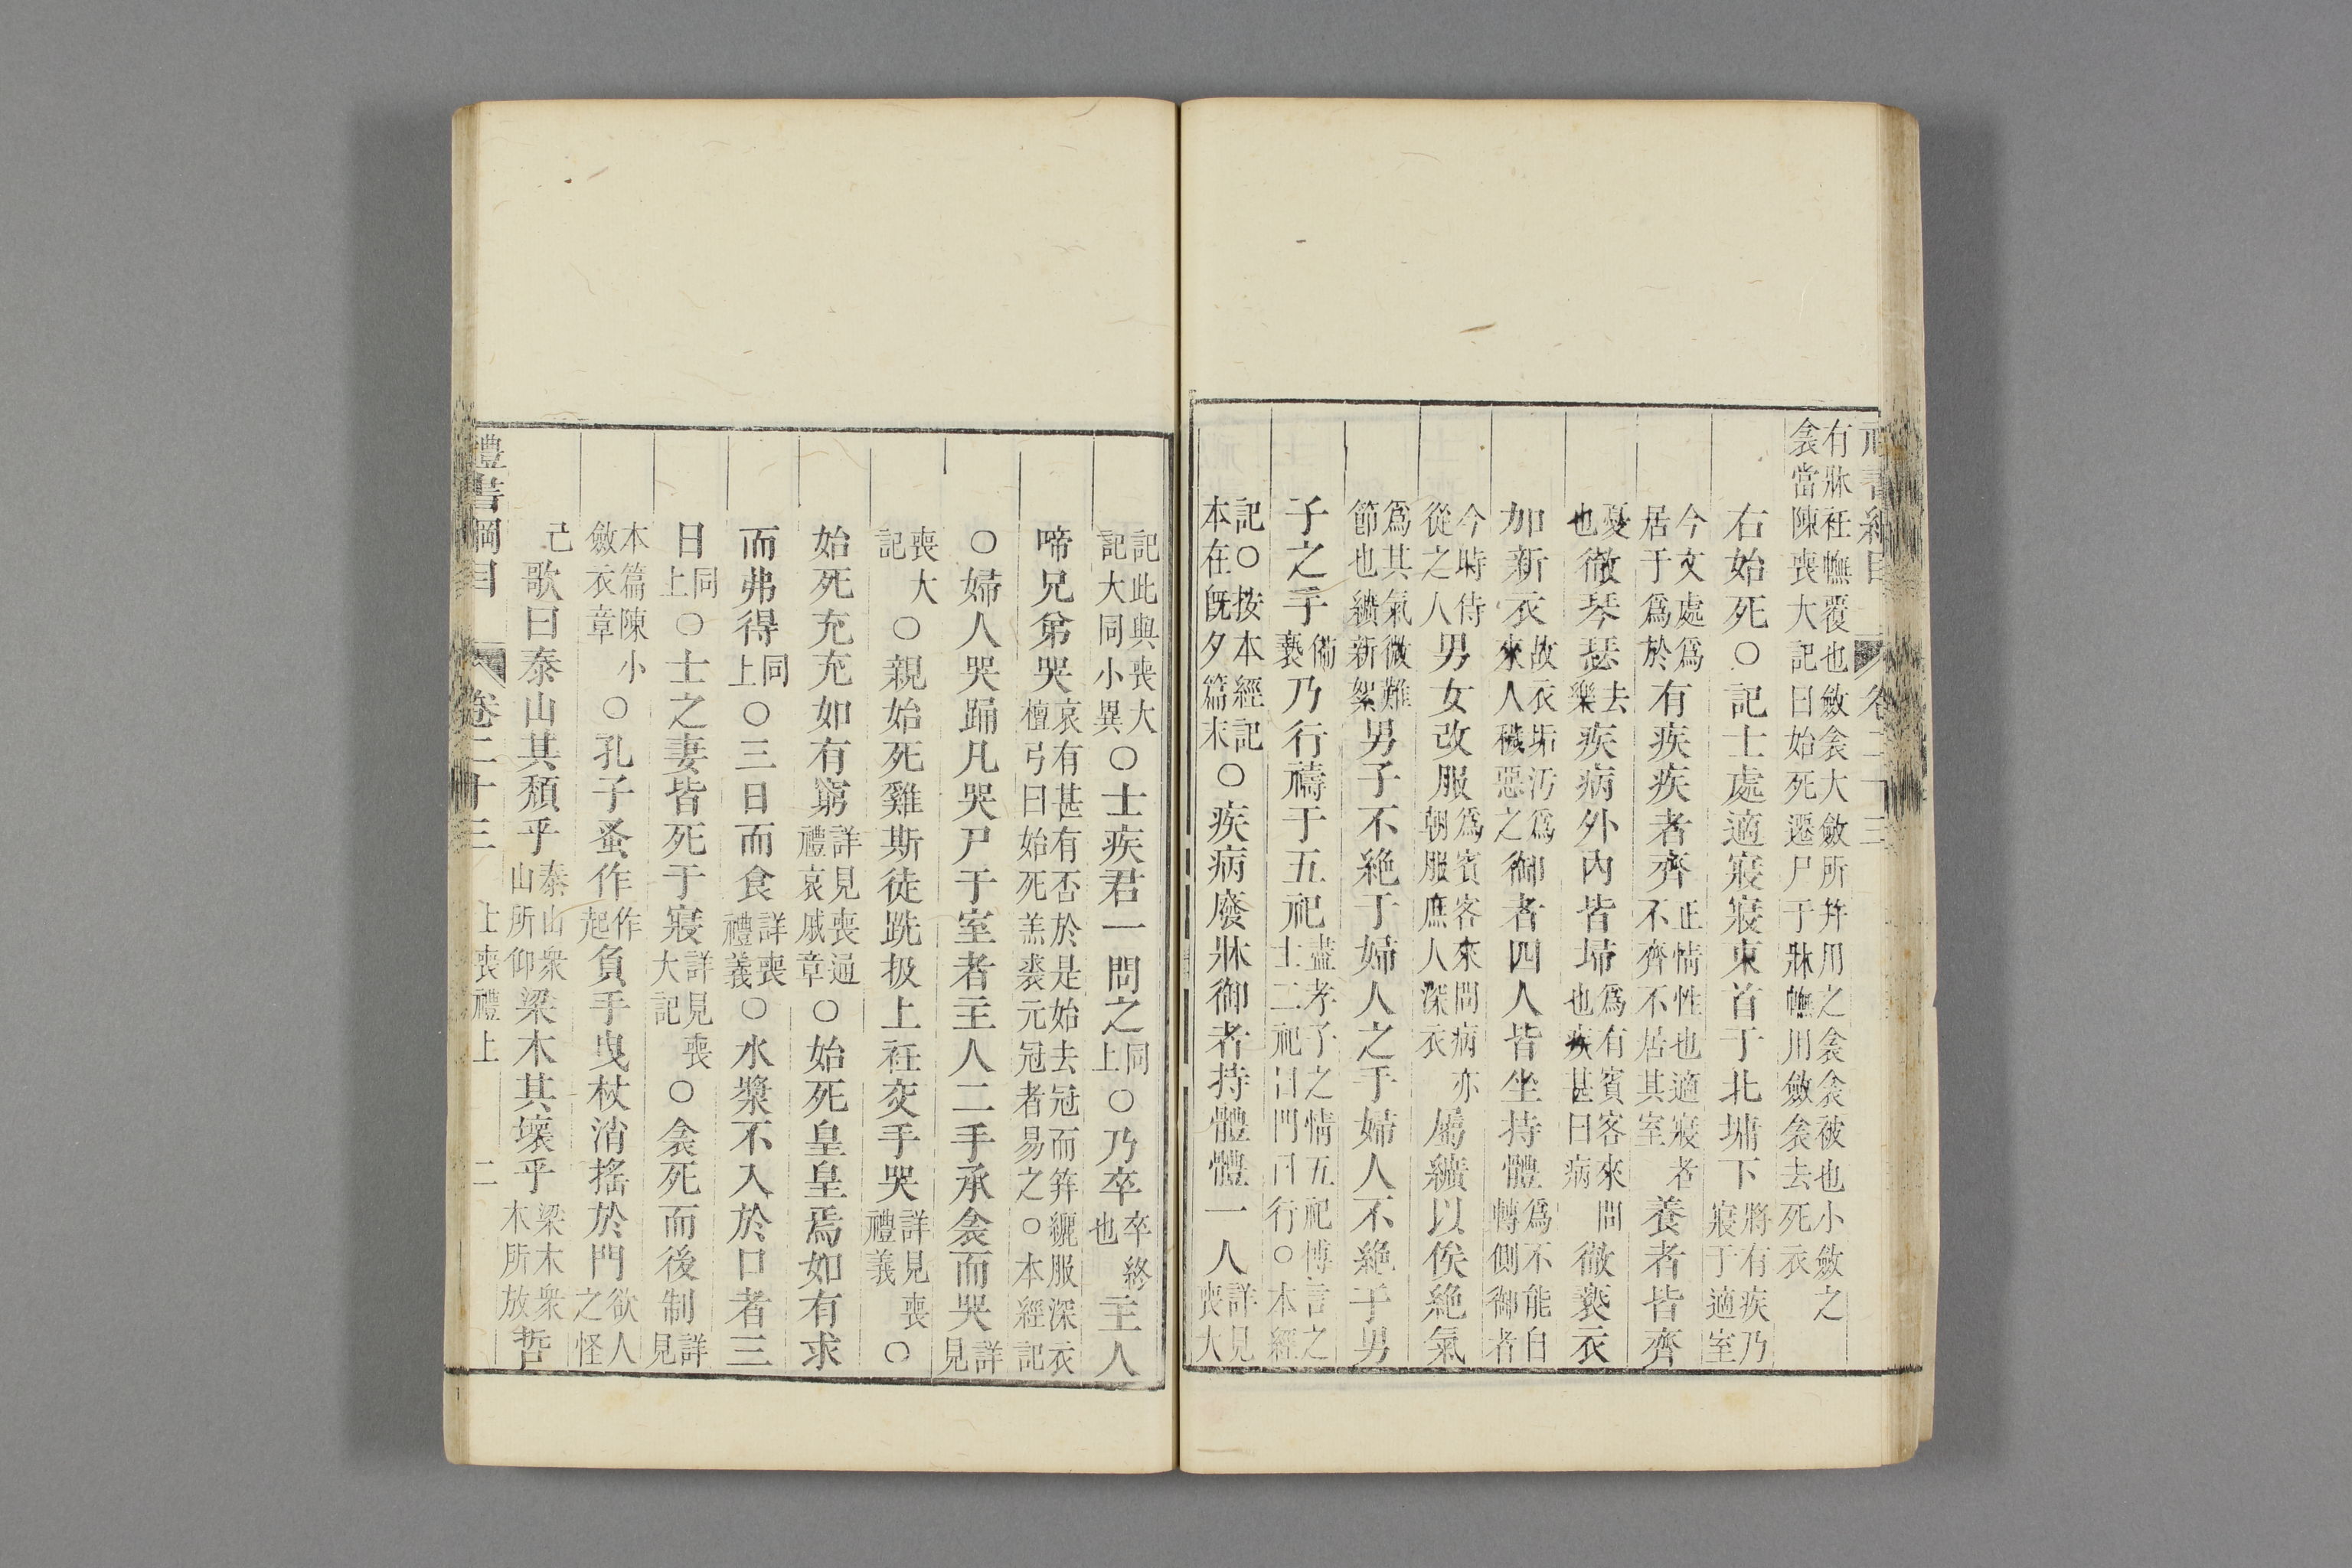 書綱目 卷二十三
有牀衽幠覆也斂衾大斂所并用之衾衾被也小斂之衾當陳喪大記曰始死遷尸于牀幠用斂衾去死衣
右始死○記士處適寢寢東首于北墉下將有疾乃寢于適室
今文處爲居于爲於有疾疾者齊正情性也適寢者不齊不居其室養者皆齊
憂也徹琴瑟去樂疾病外內皆埽爲有賓客來問也疾甚曰病徹褻衣
加新衣故衣垢汚爲來人穢惡之御者四人皆坐持體爲不能自轉側御者
今時侍從之人男女改服爲賓客來問病亦朝服庶人深衣屬纊以俟絕氣
爲其氣微難節也纊新絮男子不絕于婦人之手婦人不絕于男
子之手備褻乃行禱于五祀盡孝子之情五祀博言之士二祀曰門曰行○本經
記○按本經記本在旣夕篇末○疾病廢牀御者持體體一人詳見喪大
記此與喪大記大同小異○士疾君一問之同上○乃卒卒終也主人
啼兄弟哭哀有甚有否於是始去冠而笄纚服深衣檀弓曰始死羔裘元冠者易之○本經記
○婦人哭踊凡哭尸于室者主人二手承衾而哭詳見
喪大記○親始死雞斯徒跣扱上衽交手哭詳見喪禮義○
始死充充如有窮詳見喪通禮哀戚章○始死皇皇焉如有求
而弗得同上○三日而食詳喪禮義○水漿不入於口者三
日同上○士之妻皆死于寢詳見喪大記○衾死而後制詳見
本篇陳小斂衣章○孔子蚤作作起負手曳杖消搖於門欲人之怪
己歌曰泰山其頹乎泰山衆山所仰梁木其壞乎梁木衆木所放哲
禮書綱目 卷二十三 士喪禮上 二